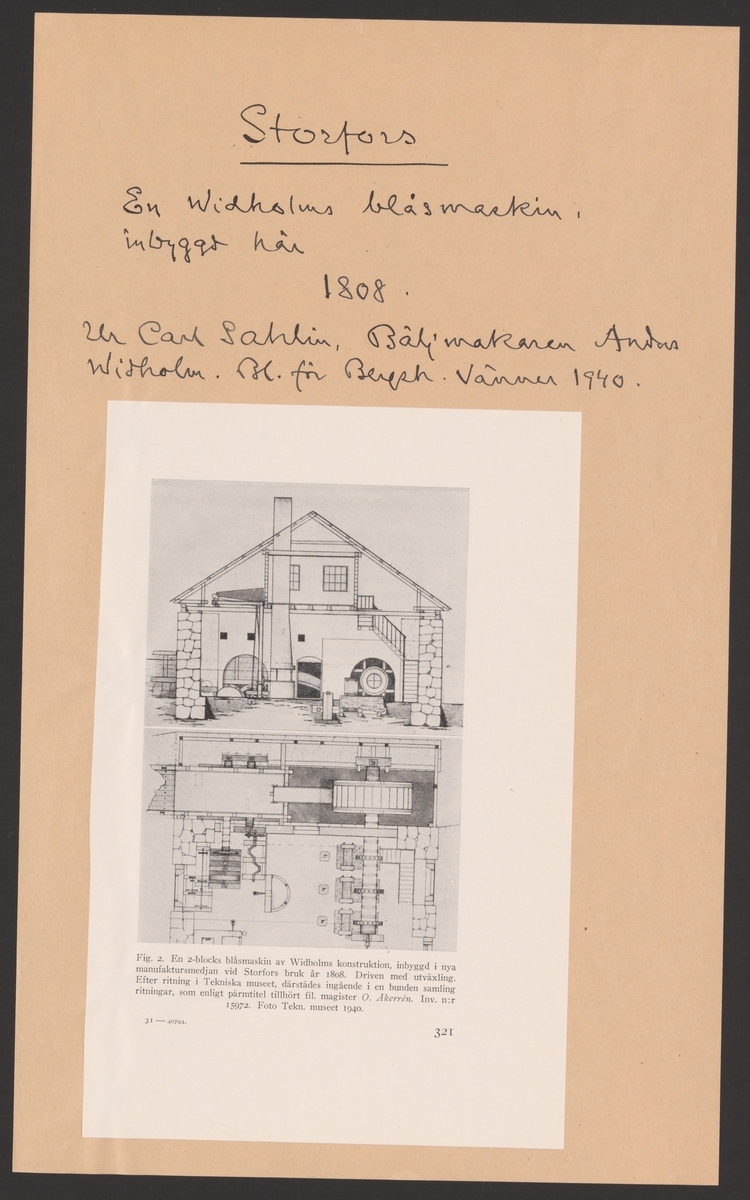 Storfors
En Widholms blåsmaskin,
inbyggd här
1808.
Ur Carl Sahlin, Bälj makaren Anders
Widholm. Bl. för Bergsh. Vänner 1940.
Fig. 2. En 2-blocks blåsmaskin av Widholms konstruktion, inbyggd i nya
manufaktursmedjan vid Storfors bruk år 1808. Driven med utväxling.
Efter ritning i Tekniska museet, därstädes ingående i en bunden samling
ritningar, som enligt pärmtitel tillhört fil. magister O. Åkerrén. Inv. n:r
15972. Foto Tekn. museet 1940.
31 — 40794.
321